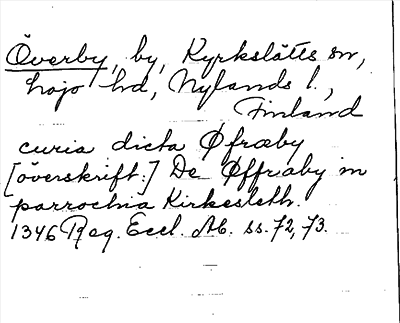 Överby, by, Kyrkslätts sn,
Lojo hd, Nylands l.,
Finland
curia dicta Øfræby
[överskrift:] De Øffraby in
parrochia Kirkesleth.
1346 Reg. Eccl. Ab. ss. 72, 73.